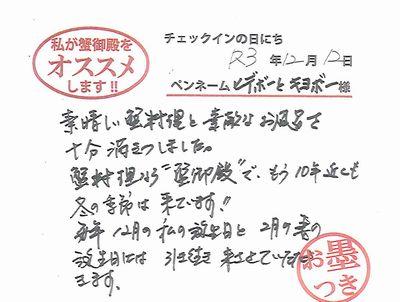 私が蟹御殿を
オススメ
します!!
チェックインの日にち
R3年12月12日
ペンネームヒデボーとキヨボー様
素晴しい蟹料理と素敵なお風呂で
十分満きつしました。
蟹料理なら"蟹御殿"で、もう10年近くも
冬の季節は来ています!!
毎年12月の私の誕生日と2月の妻の
誕生日には引き続き来させていただき
ます。
お墨
つき